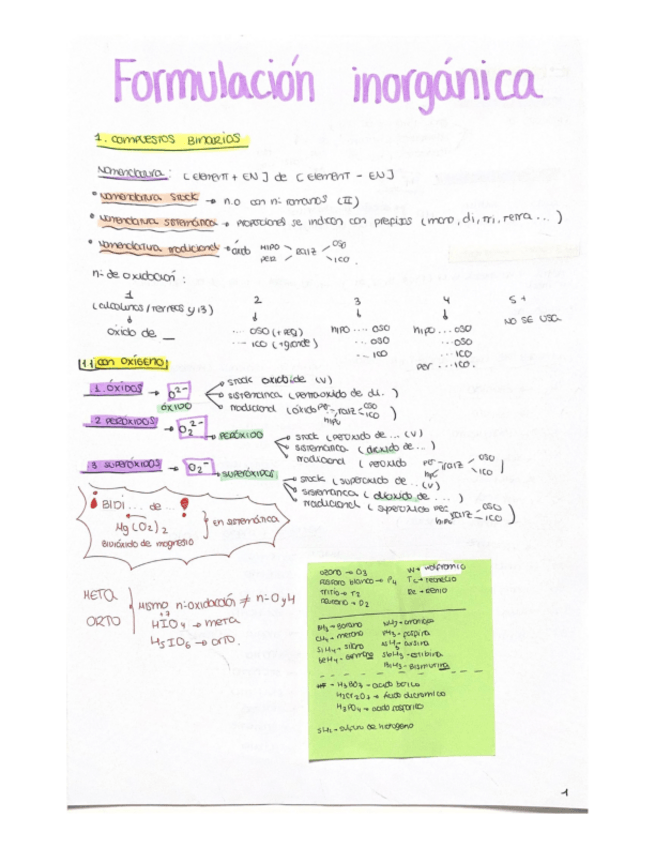 Formulación inorgánica
1. COMPUESTOS BINARIOS
Nomenclatura: [element + EN] de [element - EN]
• Nomenclatura Stock → n.o con nº romanos (II)
• Nomenclatura sistemática → proporciones se indican con prefijos (mono, di, tri, penta ... )
• Nomenclatura tradicional → ácido HIPO PER RAIZ OSO ICO.
nº de oxidación:
1 2 3 4 5+
(alcalinos / térreos y 13) NO SE USA
óxido de __ ... OSO (+ peq) hipo ... OSO hipo ... OSO
... ICO (+ grande) ... OSO ... OSO
... ICO ... ICO
per ... ICO.
1.1 CON OXÍGENO
1. ÓXIDOS → O²⁻ ÓXIDO
stock óxido de (V)
sistemática (pentaóxido de di. )
tradicional (óxido per hipo raiz oso ico)
2 PERÓXIDOS → O₂²⁻ → PERÓXIDO
stock (peróxido de ... (V)
sistemática (dióxido de ... )
tradicional (peróxido per hipo raiz oso ico)
3 SUPERÓXIDOS → O₂⁻ → SUPERÓXIDOS
stock (superóxido de ... (V)
sistemática (dióxido de ... )
tradicional (superóxido per hipo raiz oso ico)
! BIDI ... de ... !
Mg(O₂)₂ } en sistemática
Bidióxido de magnesio
META
ORTO } mismo nº oxidación ≠ nº O y H
+7
HIO₄ → meta
H₅IO₆ → orto.
ozono → O₃ W → Wolframio
fósforo blanco → P₄ Tc → tecnecio
tritio → T₂ Re → renio
deuterio → D₂
BH₃ → Borano NH₃ → amoniaco
CH₄ → metano PH₃ → fosfina
SiH₄ → silano AsH₃ → arsina
GeH₄ → germano SbH₃ → estibina
BiH₃ → Bismutina
H₃BO₃ → ácido bórico
H₂Cr₂O₇ → Ácido dicrómico
H₃PO₄ → ácido fosfórico
SH₂ → sulfuro de hidrógeno
1